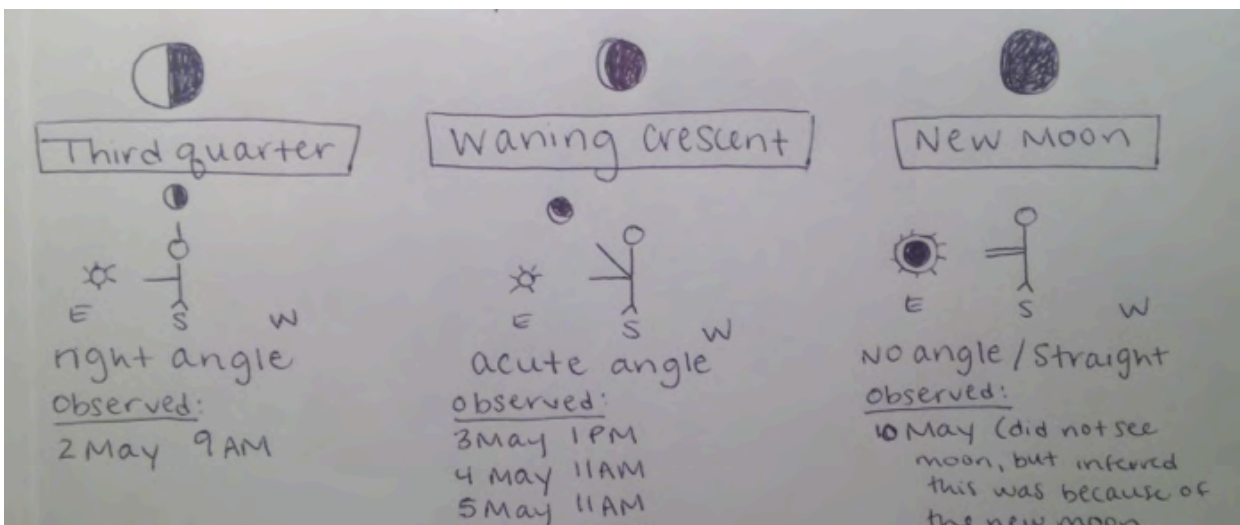 Third quarter
E S W
right angle
Observed:
2 May 9 AM
Waning Crescent
E S W
acute angle
observed:
3 May 1 PM
4 May 11 AM
5 May 11 AM
New Moon
E S W
No angle / Straight
Observed:
10 May (did not see
moon, but inferred
this was because of
the new moon